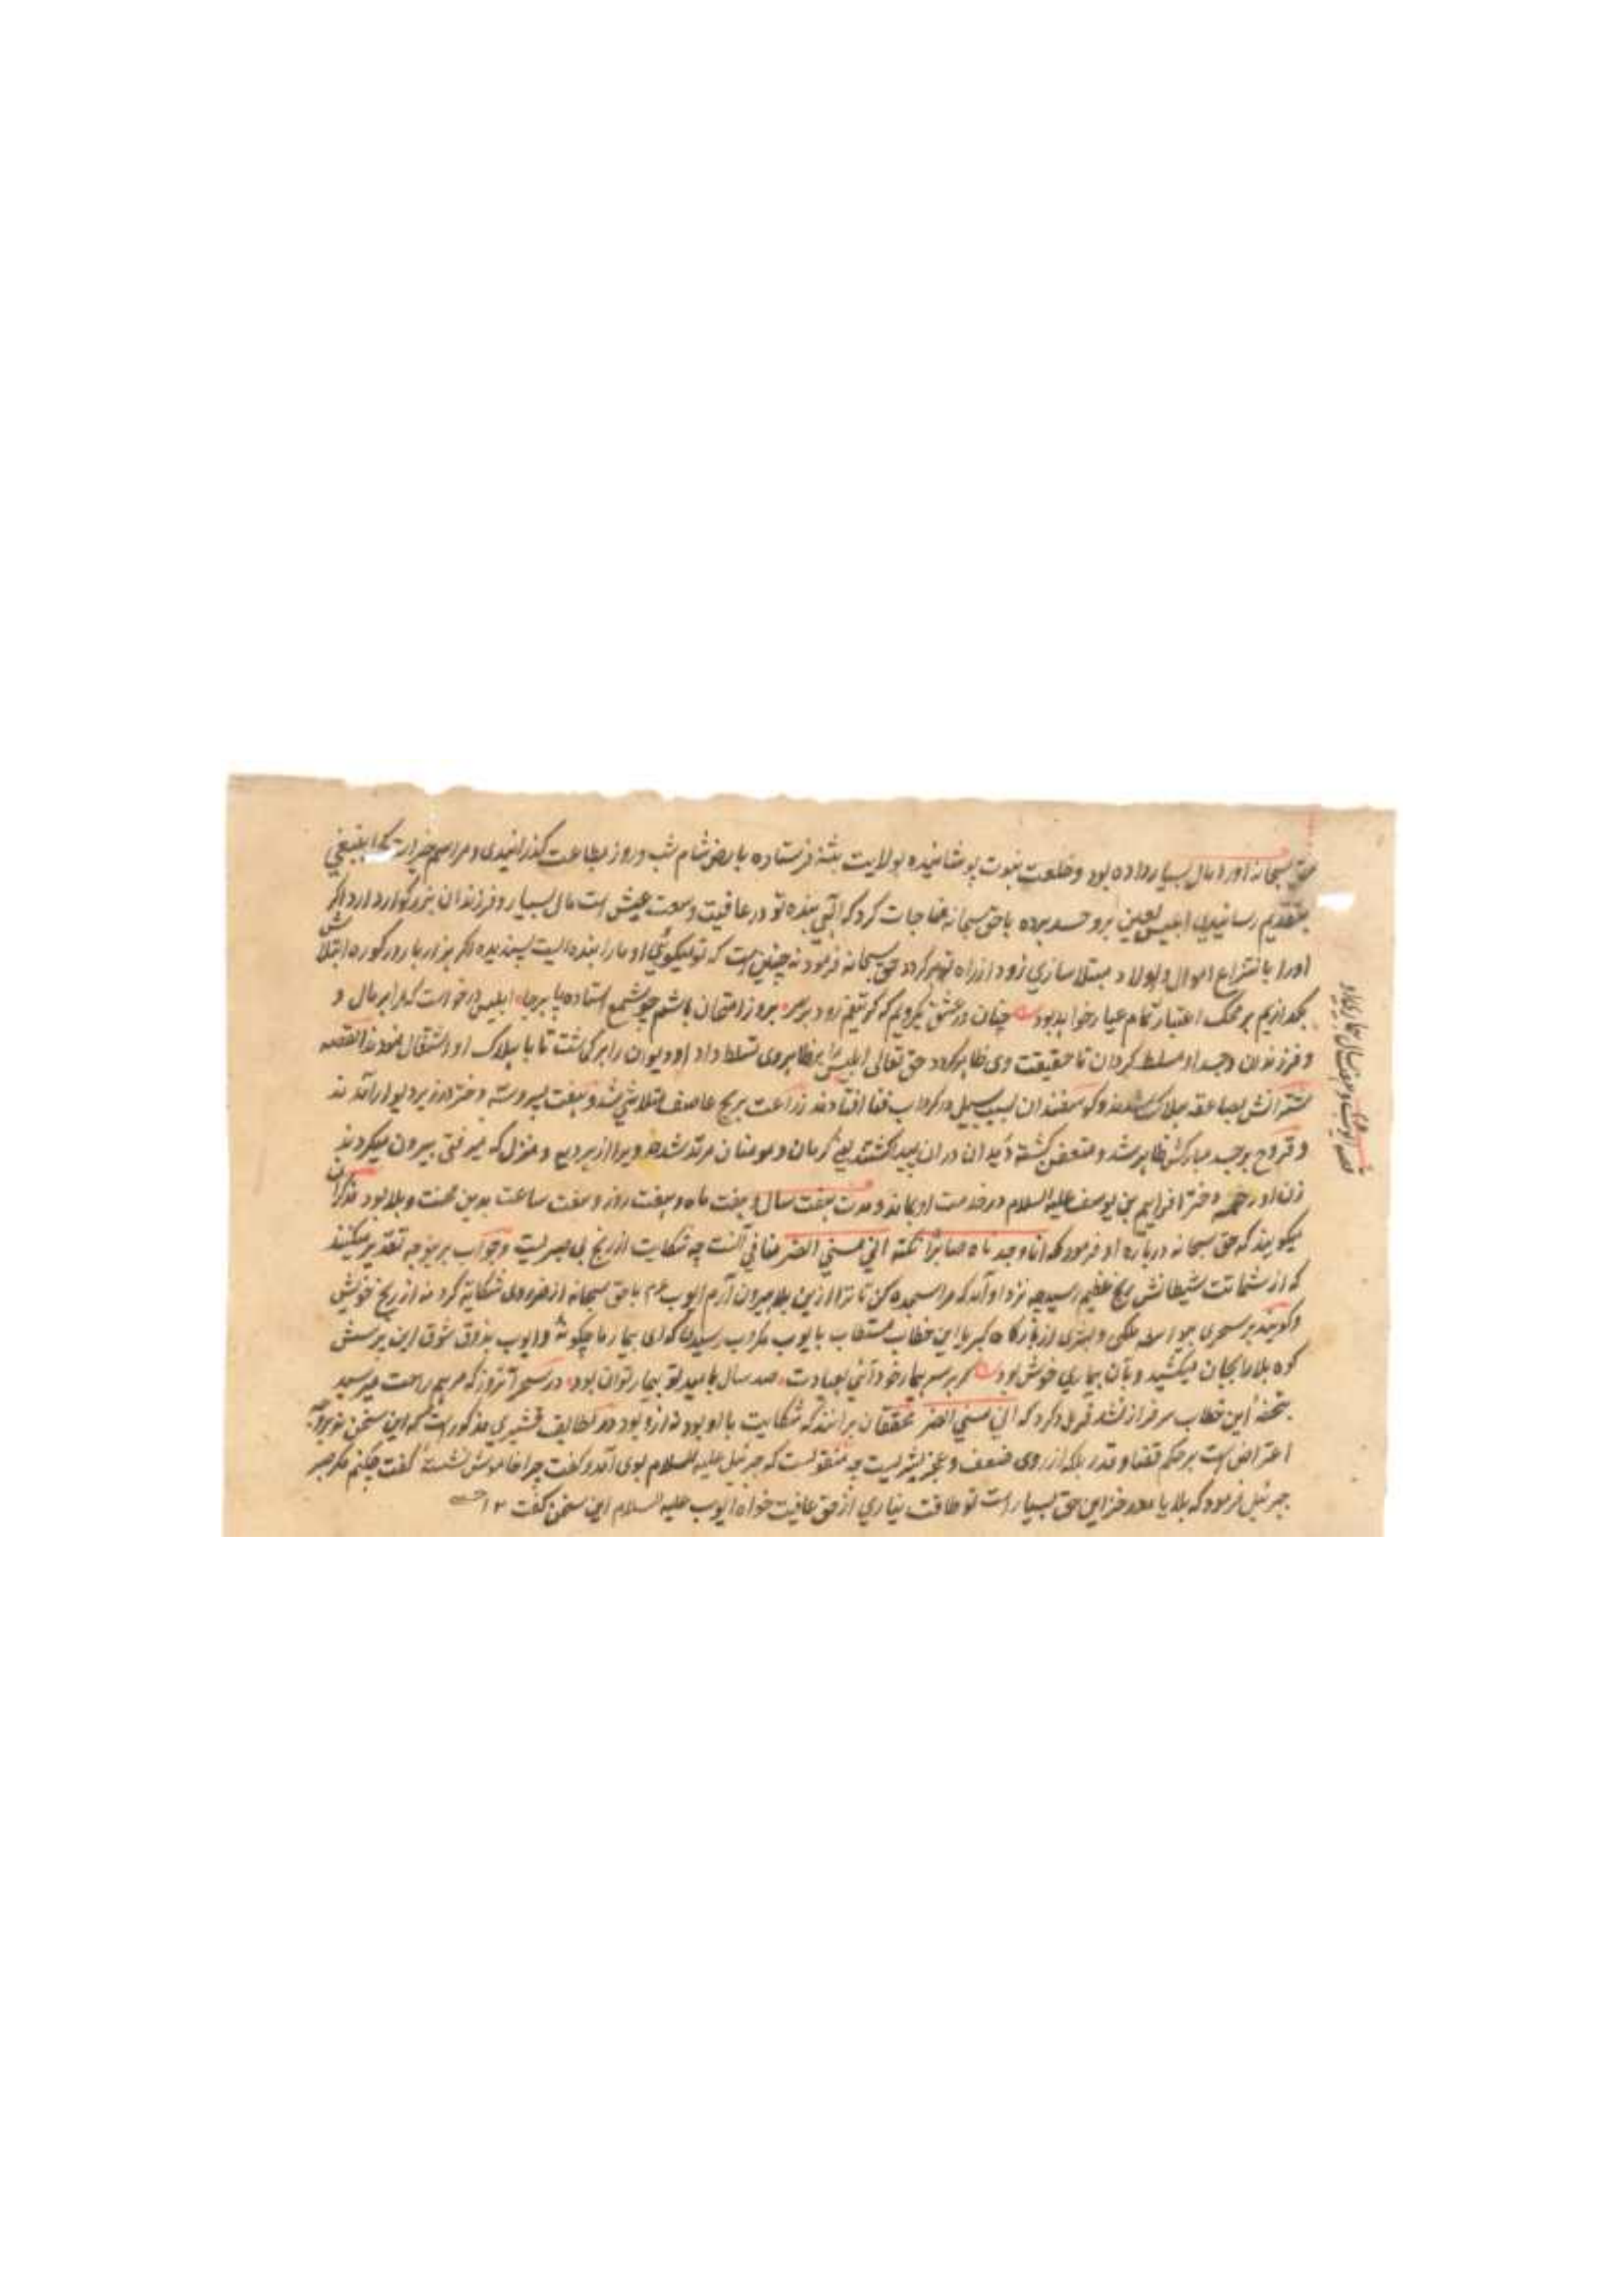 حق سبحانه اورا مال بسیار داده بود و خلعت نبوت پوشانیده بولایت بثنه فرستاده بارض شام شب و روز بطاعت گذرانیدی و مراسم خیرات کما ینبغی
بتقدیم رسانیدی ابلیس لعین برو حسد برده باحق سبحانه مناجات کرد که الهی بنده تو در عافیت و سعت عیش است مال بسیار و فرزندان بزرگوار دارد اگر
اورا بانتزاع اموال و اولاد مبتلا سازی زود از راه تو برگردد حق سبحانه فرمود نه چنین است که تو میگوئی او مارا بنده ایست پسندیده اگر هزار بار در کوره ابتلاش
بگدازیم بر محک اعتبار تمام عیار خواهد بود چنان در عشق یکرویم که گر تیغم زود بر سر بروز امتحان باشم چو شمع استاده پا برجا ابلیس درخواست که مرا بر مال و
و فرزندان و جسد او مسلط گردان تا حقیقت وی ظاهر گردد حق تعالی ابلیس را بر ظاهر وی تسلط داد او دیوان را برگماشت تا با هلاک او اشتغال نمودند القصه
شترانش بصاعقه هلاک شدند و گوسفندان بسبب سیل در گرداب فنا افتادند زراعت بریح عاصف متلاشی شد و هفت پسر و سه دختر در زیر دیوار آمدند
و قروح بر جسد مبارکش ظاهر شد و متعفن گشته دیدان در ان پیدا گشتند یعنی کرمان و مومنان مرتد شدند ویرا از هر دیه و منزل که میرفتی بیرون میکردند
زن او رحمه دختر افرایم بن یوسف علیه السلام در خدمت او بماند و مدت هفت سال و هفت ماه و هفت روز و هفت ساعت بدین محنت و بلا بود مذکران
میگویند که حق سبحانه درباره او فرمود که انا وجدناه صابرا نکته انی مسنی الضر منافی آنست چه شکایت از رنج بی صبریست وجواب برین وجه تقدیر میکنند
که از شماتت شیطانش رنج عظیم رسید چه نزد او آمد که مرا سجده کن تا ترا ازین بلا بیرون آرم ایوب عم با حق سبحانه از ضر وی شکایة کرد نه از رنج خویش
و گویند هر سحری بیواسطه ملکی و بشری از بارگاه کبریا این خطاب مستطاب بایوب مکروب رسیدی که ای بیمار ما چگونهٔ و ایوب بذوق شوق این پرسش
کوه بلا را بجان میکشید و بآن بیماری خوش بود گر بر سر بیمار خود آئی بعیادت صد سال بامید تو بیمار توان بود در سحر آنروز که مرهم راحت میرسید
بتحفهٔ این خطاب سرفراز نشد که انی مسنی الضر محققان برانند که شکایت با او بود نه ازو بود در لطایف قشیری مذکور است که این سخن نه بر وجه
اعتراض است بر حکم قضا و قدر بلکه از روی ضعف و عجز بشریست چه منقولست که جبرئیل علیه السلام بوی آمد و گفت چرا خاموش نشستهٔ گفت چکنم مگر صبر
جبرئیل فرمود که بلایا در خزاین حق بسیار است تو طاقت نیاری از حق عافیت خواه ایوب علیه السلام این سخن گفت ۱۲